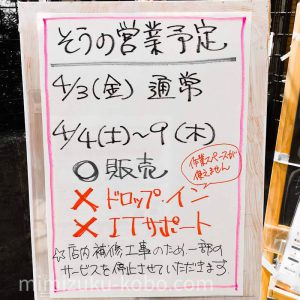 そうの営業予定
4/3(金) 通常
4/4(土)〜9(木)
○販売
作業スペースが
使えません
×ドロップ・イン
×ITサポート
☆店内補修工事のため、一部の
サービスを停止させていただきます。
mimizuku-kobo.com